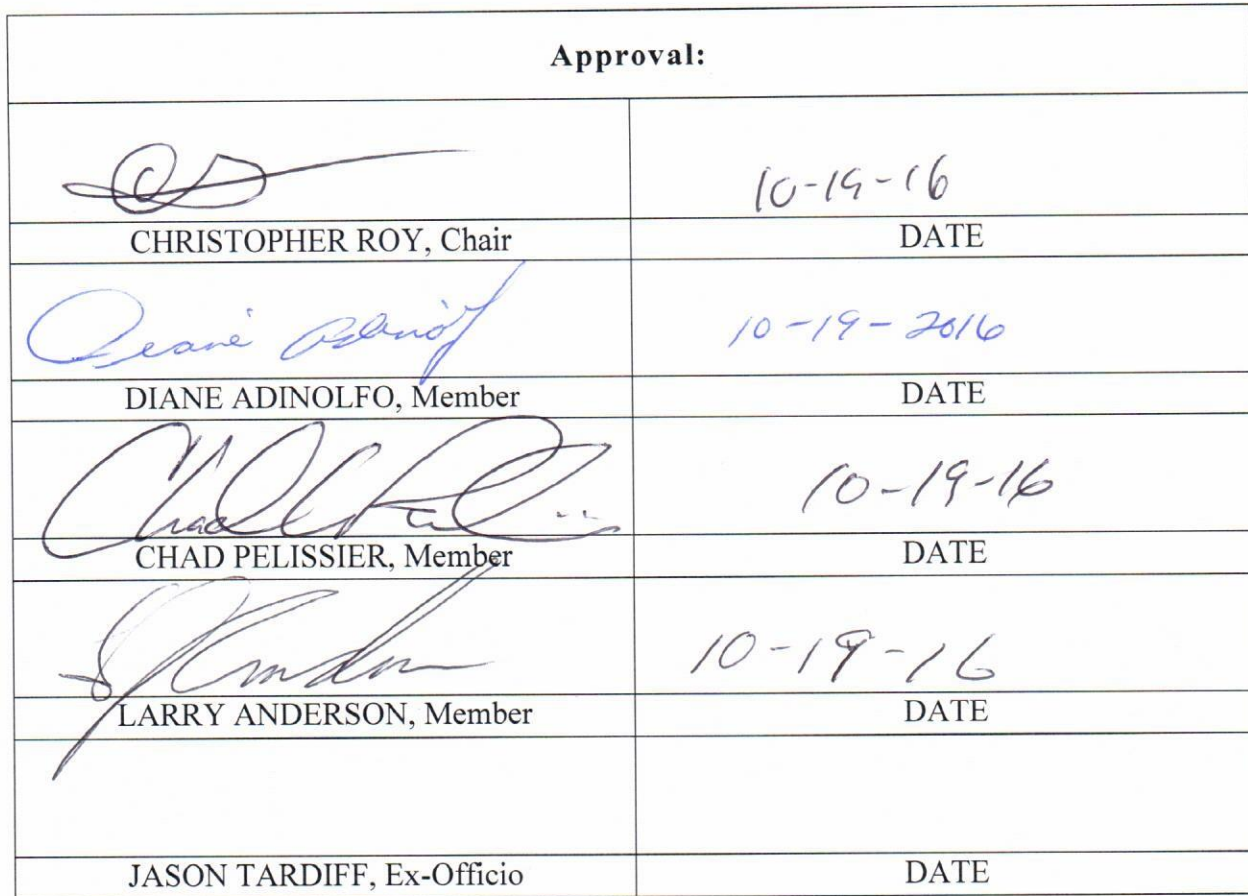 Approval:
10-19-16
CHRISTOPHER ROY, Chair DATE
Diane Adinolf 10-19-2016
DIANE ADINOLFO, Member DATE
Chad 10-19-16
CHAD PELISSIER, Member DATE
10-19-16
LARRY ANDERSON, Member DATE
JASON TARDIFF, Ex-Officio DATE